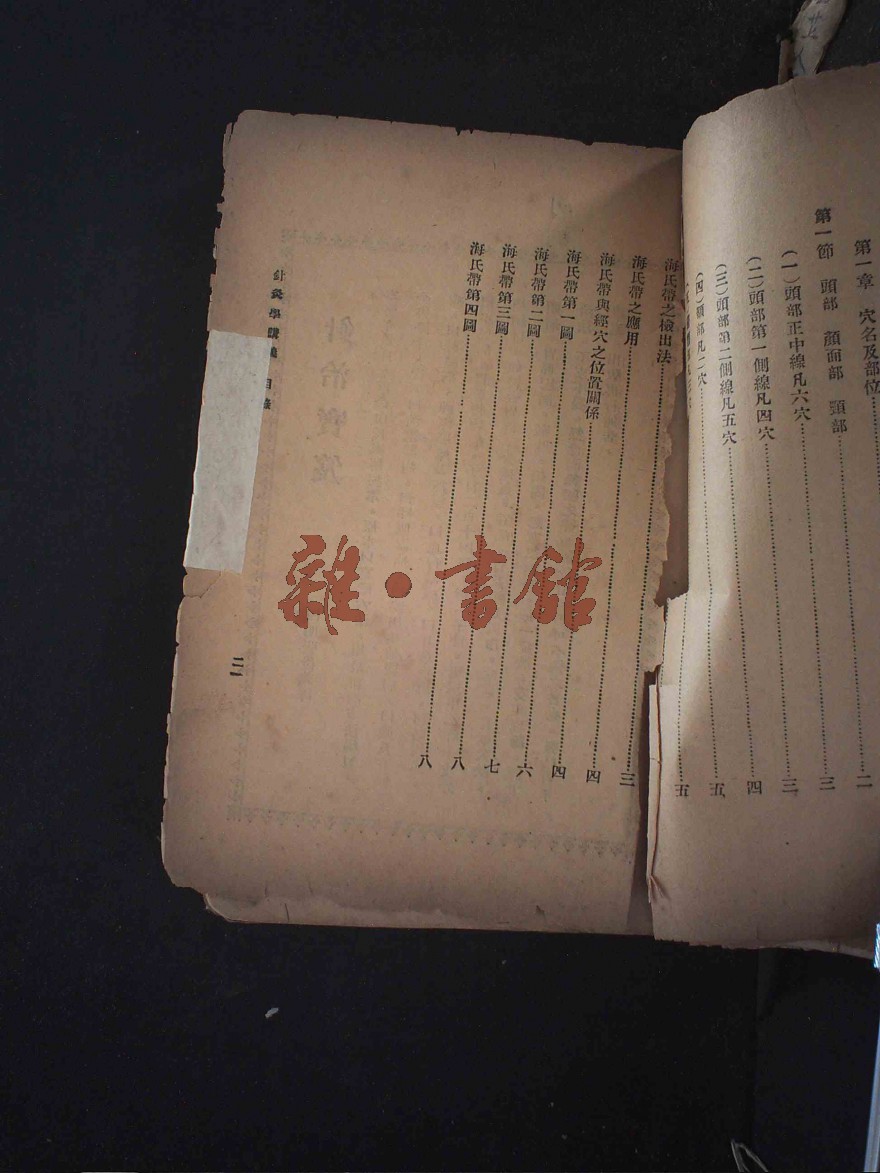 第一章　穴名及部位……二
第一節　頭部　顏面部　頸部……三
(一)頭部正中線凡六穴……三
(二)頭部第一側線凡四穴……四
(三)頭部第二側線凡五穴……五
(四)額部凡二穴……五
海氏帶之檢出法……三
海氏帶之應用……四
海氏帶與經穴之位置關係……四
海氏帶第一圖……六
海氏帶第二圖……七
海氏帶第三圖……八
海氏帶第四圖……八
針灸學講義　目錄
二
雜·書館